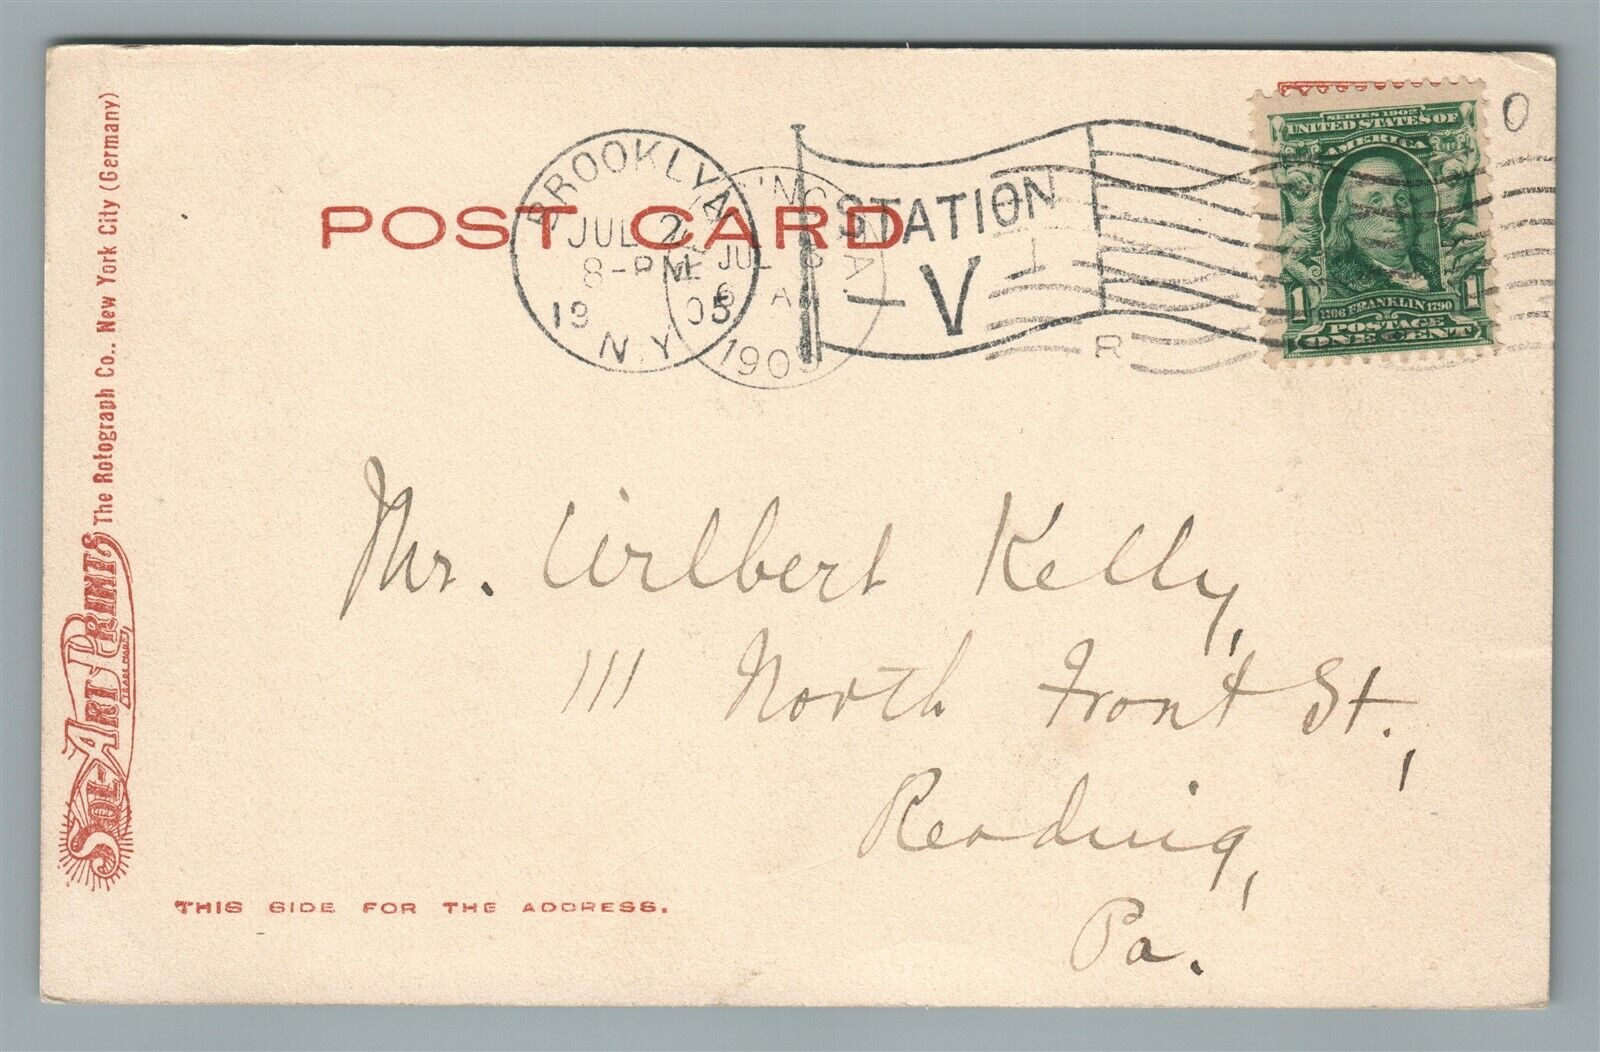 The Rotograph Co., New York City (Germany)
SOL-ART PRINTS
TRADE MARK
POST CARD
BROOKLYN
JUL 2
8-PM
19 05
N.Y.
JUL
AM
190
STATION
V
R
SERIES 1902
UNITED STATES OF
AMERICA
1 1
1706 FRANKLIN 1790
POSTAGE
ONE CENT
O
Mr. Wilbert Kelly,
111 North Front St.,
Reading,
Pa.
THIS SIDE FOR THE ADDRESS.